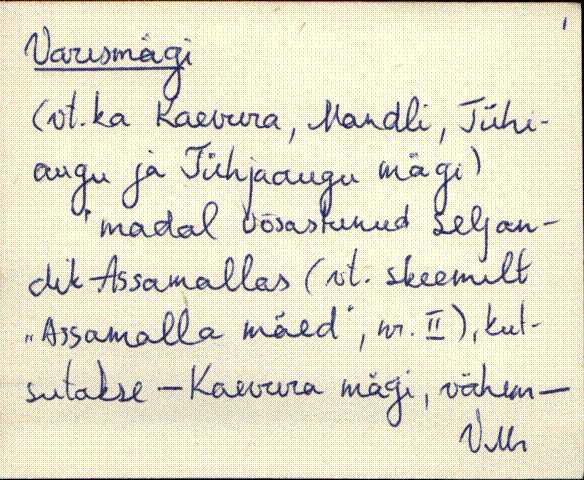 Varesmägi
(vt. ka Kaevura, Mandli, Tühi-
augu ja Tühjaaugu mägi)
madal võsastunud seljan-
dik Assamallas (vt. skeemilt
„Assamalla mäed", nr. II), kut-
sutakse – Kaevura mägi, vähem –